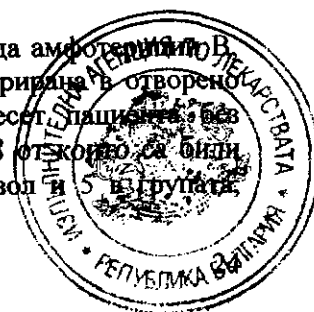 да амфотерицин В,
рирана в отворено
пациента без
от които са били
вол и 5 в групата,
АГЕНЦИЯ ПО ЛЕКАРСТВАТА
РЕПУБЛИКА БЪЛГАРИЯ